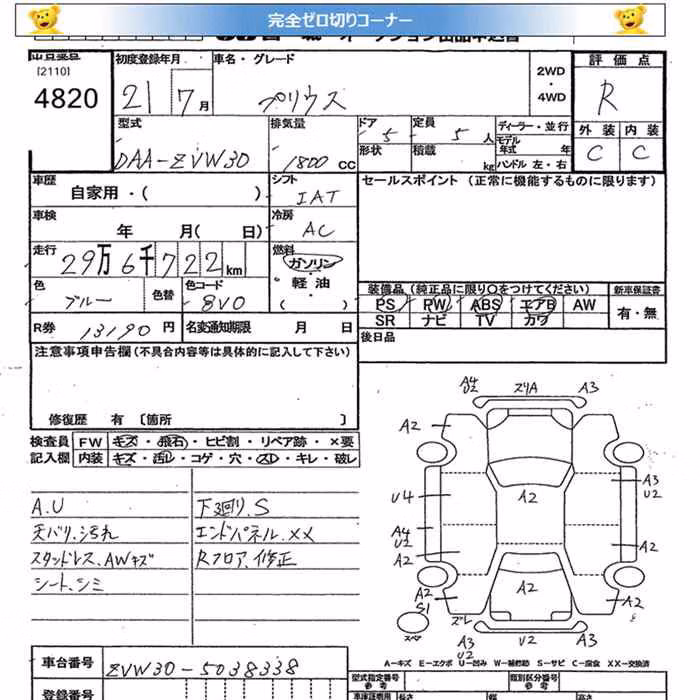 完全ゼロ切りコーナー
[2110]
4820
初度登録年月
21 7月
車名・グレード
プリウス
2WD
・
4WD
評価点
R
外装 内装
C C
型式
DAA-ZVW30
排気量
1800 CC
ドア 5
形状
定員 5人
積載 kg
ディーラー・並行
モデル年式 年
ハンドル 左・右
車歴
自家用・( )
シフト
IAT
セールスポイント (正常に機能するものに限ります)
車検
年 月( 日)
冷房
AC
走行
29万6千722km
燃料
ガソリン
・
軽油
・
( )
色
ブルー
色替
色コード
8V0
装備品 (純正品に限り○をつけてください)
PS PW ABS エアB AW
SR ナビ TV カワ
新車保証書
有・無
R券 13190円
名変通知期限 月 日
後日品
注意事項申告欄(不具合内容等は具体的に記入して下さい)
修復歴 有 〔箇所 〕
検査員 FW キズ・飛石・ヒビ割・リペア跡・×要
記入欄 内装 キズ・汚レ・コゲ・穴・スレ・キレ・破レ
A.U
天バリ.汚れ
スタッドレス.AWキズ
シート.シミ
下廻り.S
エンドパネル.XX
Rフロア.修正
A3
A2
A2
U4
A2
A3
U2
A2
A2
A2
A2
S1
A2
スペア
ズレ
A3
U2
U2
A-キズ E-エクボ U-凹み W-補修跡 S-サビ C-腐食 XX-交換済
車台番号
ZVW30-5038338
登録番号
型式指定番号
参考
類別区分番号
参考
長さ
幅
高さ